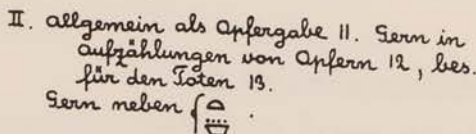 II. allgemein als Opfergabe 11. Gern in
aufzählungen von Opfern 12, bes.
für den Toten 13.
Gern neben { .